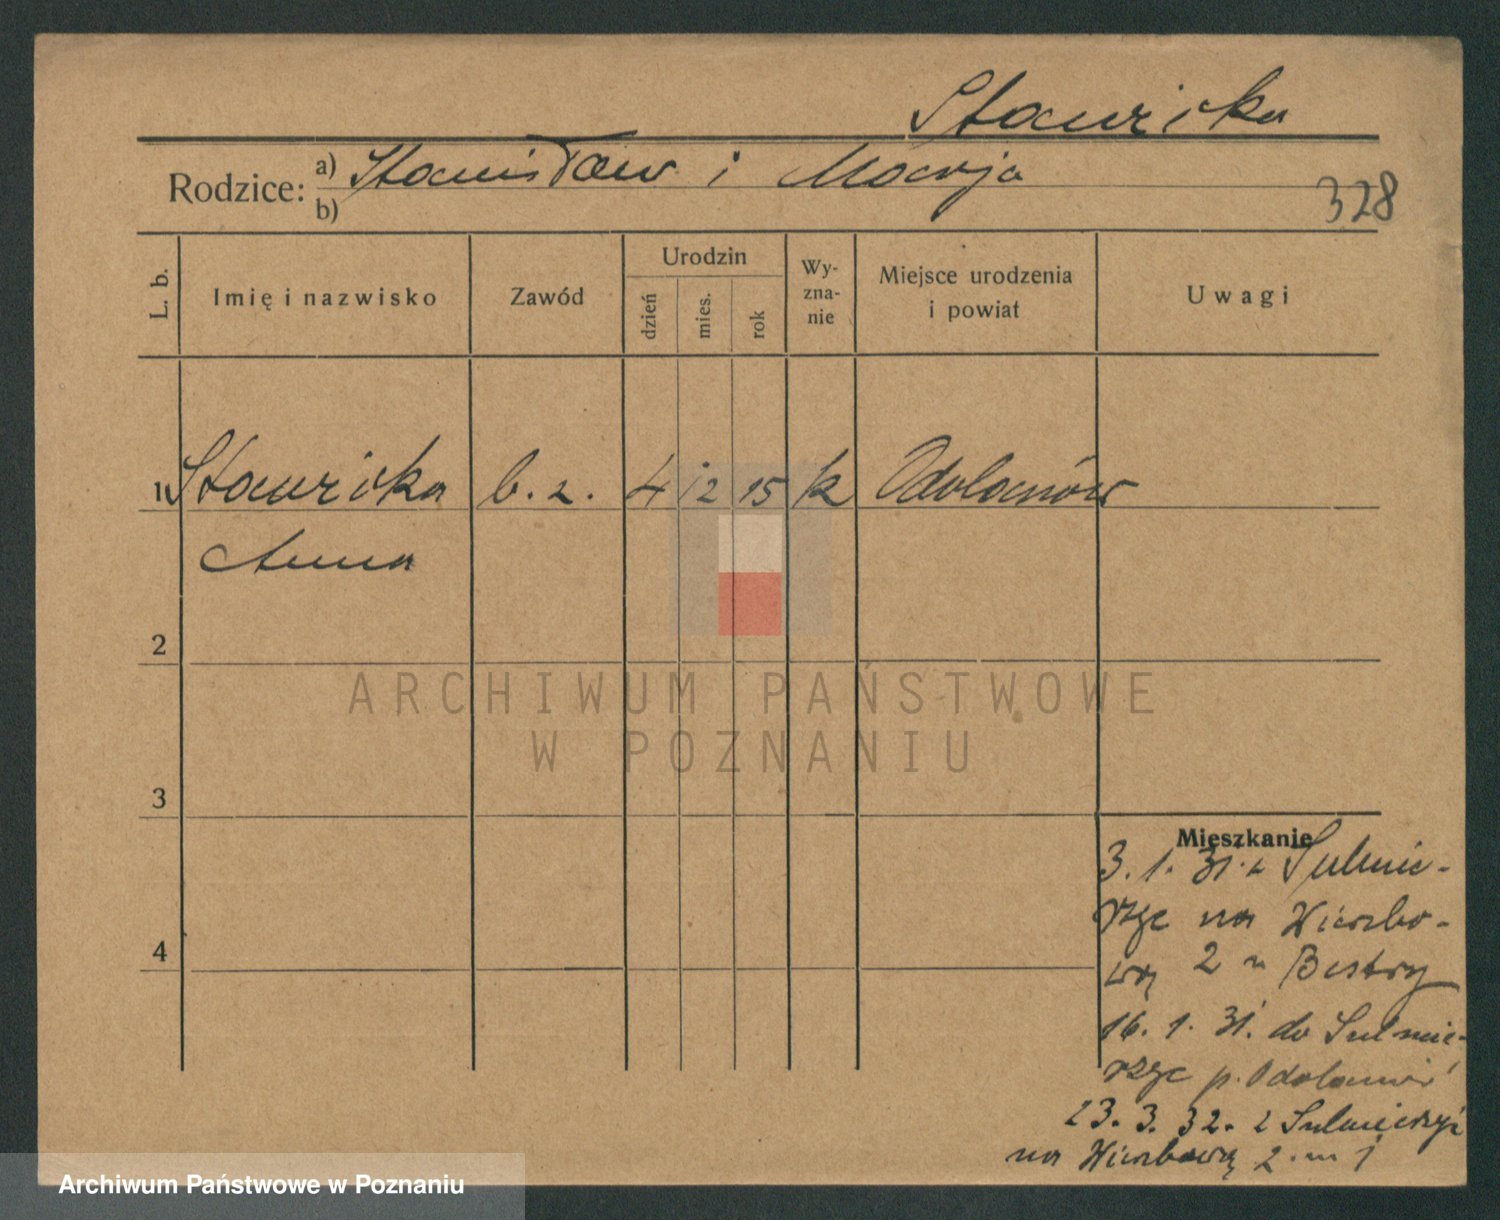 Stawicka
Rodzice: a) Stanisław i Marja
b)
328
L. b.
Imię i nazwisko
Zawód
Urodzin
dzień
mies.
rok
Wy-
zna-
nie
Miejsce urodzenia
i powiat
Uwagi
1 Stawicka b. z. 4 12 15 k Odolanów
Anna
2
3
4
ARCHIWUM PAŃSTWOWE
W POZNANIU
Mieszkanie
3. 1. 31. z Sulmie-
rzyc na Wierzbo-
wą 2 u Bestry
16. 1. 31. do Sulmie-
rzyc p. Odolanów
23. 3. 32. z Sulmierzyc
na Wierzbową 2. m 1
Archiwum Państwowe w Poznaniu